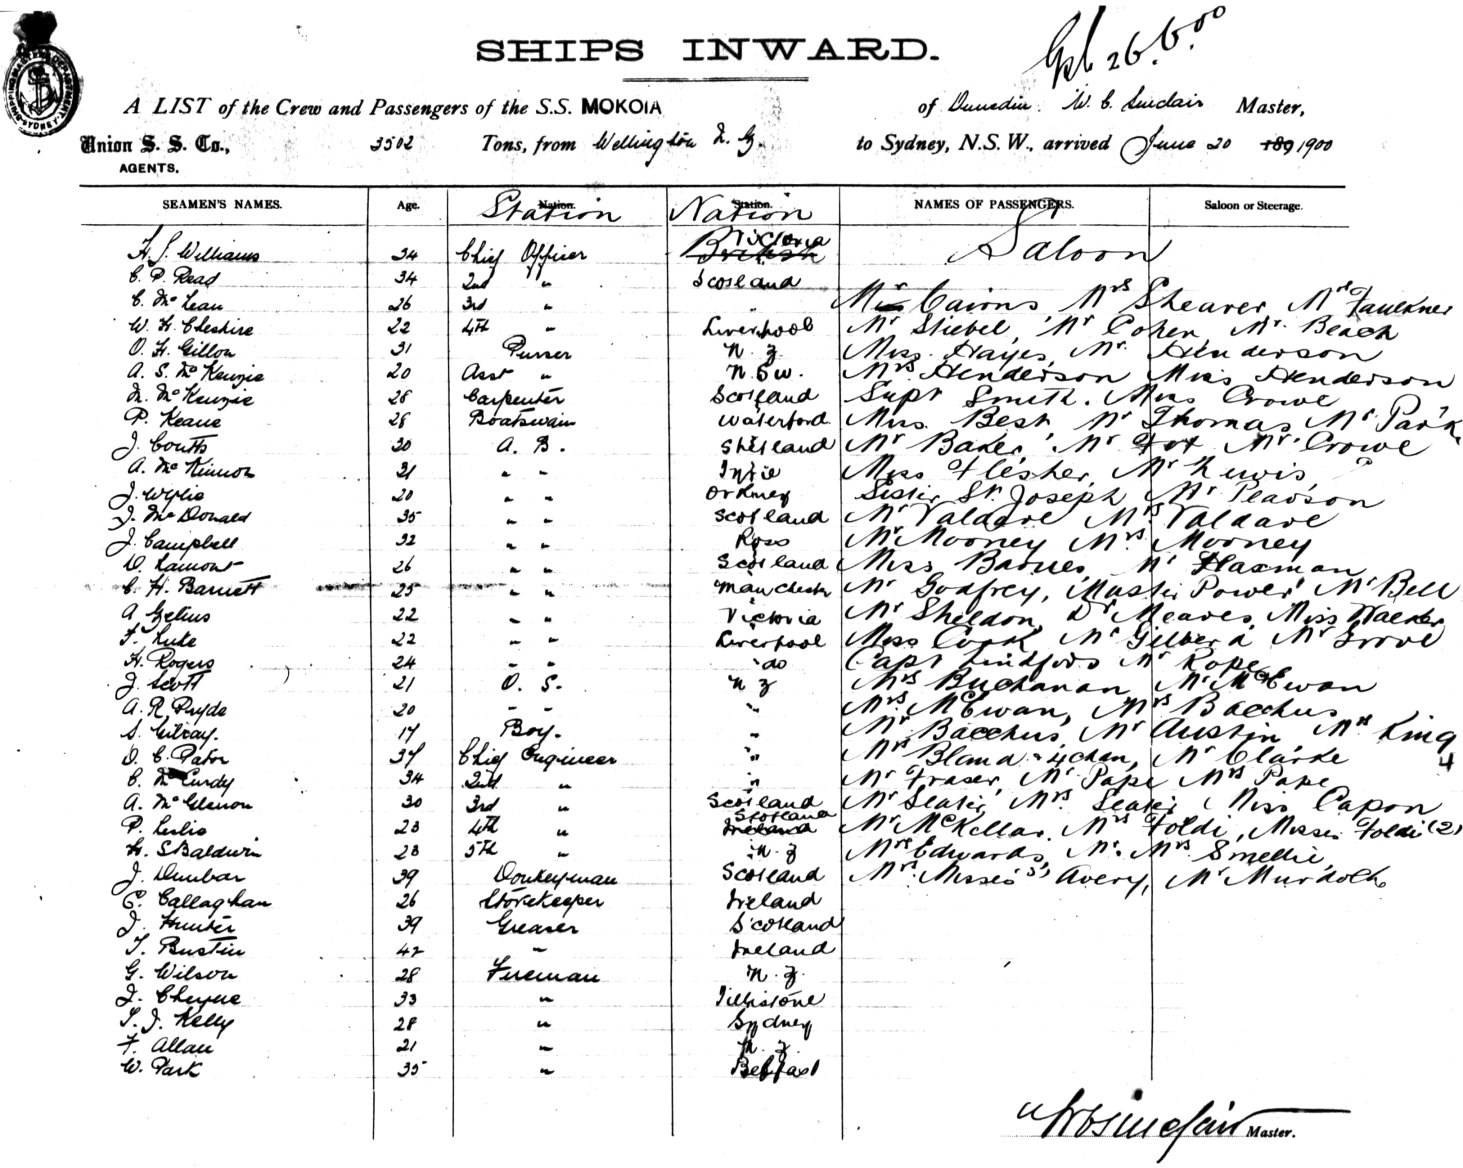 SHIPS INWARD.
A LIST of the Crew and Passengers of the S.S. MOKOIA of Dunedin. W. C. Sinclair Master,
Union S. S. Co., 3502 Tons, from Wellington N. Z. to Sydney, N.S.W., arrived June 20 189 1900
AGENTS.
SEAMEN'S NAMES. Age. Nation. Station Station. Nation NAMES OF PASSENGERS. Saloon or Steerage.
Saloon
H. J. Williams 34 Chief Officer British Victoria
C. P. Read 34 2nd " Scotland
C. McLean 26 3rd " " Cairns Mrs Shearer Faulkner
W. H. Cheshire 22 4th " Liverpool Mr Stiebel, Mr Cohen, Mr. Beach
O. H. Gillon 31 Purser N. Z. Miss Hayes, Mr Henderson
A. S. McKenzie 20 Asst " N.S.W. Mrs Henderson Miss Henderson
M. McKenzie 28 Carpenter Scotland Supt Smith. Miss Crowe
P. Keane 28 Boatswain Waterford Miss Best Mr Thomas Mr Park
J. Coutts 30 A. B. Shetland Mr Baker, Mr Fox Mr Crowe
A. McKinnon 31 " " Miss Flesher, Mr Lewis
J. Wylie 20 " " Orkney Sister St Joseph Mr Pearson
J. McDonald 35 " " Scotland Mr Valdare Mrs Valdare
J. Campbell 32 " " Ross Mr Mooney Mrs Mooney
D. Lamont 26 " " Scotland Miss Barnes, Mr Flaxman
C. H. Barnett 25 " " Manchester Mr Godfrey, Master Power Mr Bell
A 22 " " Victoria Mr Sheldon, Dr Meares, Miss Walker
F. Luke 22 " " Liverpool Miss Cook Mr Gilberd Mr Grove
H. Rogers 24 " " do Capt Lindfors Mr Rope
J. Scott 21 O. S. N Z Mrs Buchanan Mr McEwan
A. R. Pryde 20 " " " Mrs McEwan, Mrs Bacchus
S. Gilray. 17 Boy. " Mr Bacchus, Mr Austin King
D. C. Pator 37 Chief Engineer " Mrs Bland & 4 chdn, Mr Clarke 4
C. McCurdy 34 2nd " " Mr Fraser, Mr Pape Mrs Pape
A. McGlenon 30 3rd " Scotland Mr Slater, Mrs Slater, Miss Capon
P. Leslie 23 4th " Ireland Scotland Mr McKellar. Mrs Foldi, Misses Foldi (2)
H. S. Baldwin 23 5th " N. Z Mrs Edwards, Mr. Mrs Smellie,
J. Dunbar 39 Donkeyman Scotland Misses Avery, Mr Murdoch
C. Callaghan 26 Storekeeper Ireland
J. Hunter 39 Greaser Scotland
T. Bustin 42 " Ireland
G. Wilson 28 Fireman N. Z.
J. Cheyne 33 "
T. J. Kelly 28 " Sydney
F. Allan 21 " N. Z.
W. Park 35 " Belfast
W C Sinclair Master.